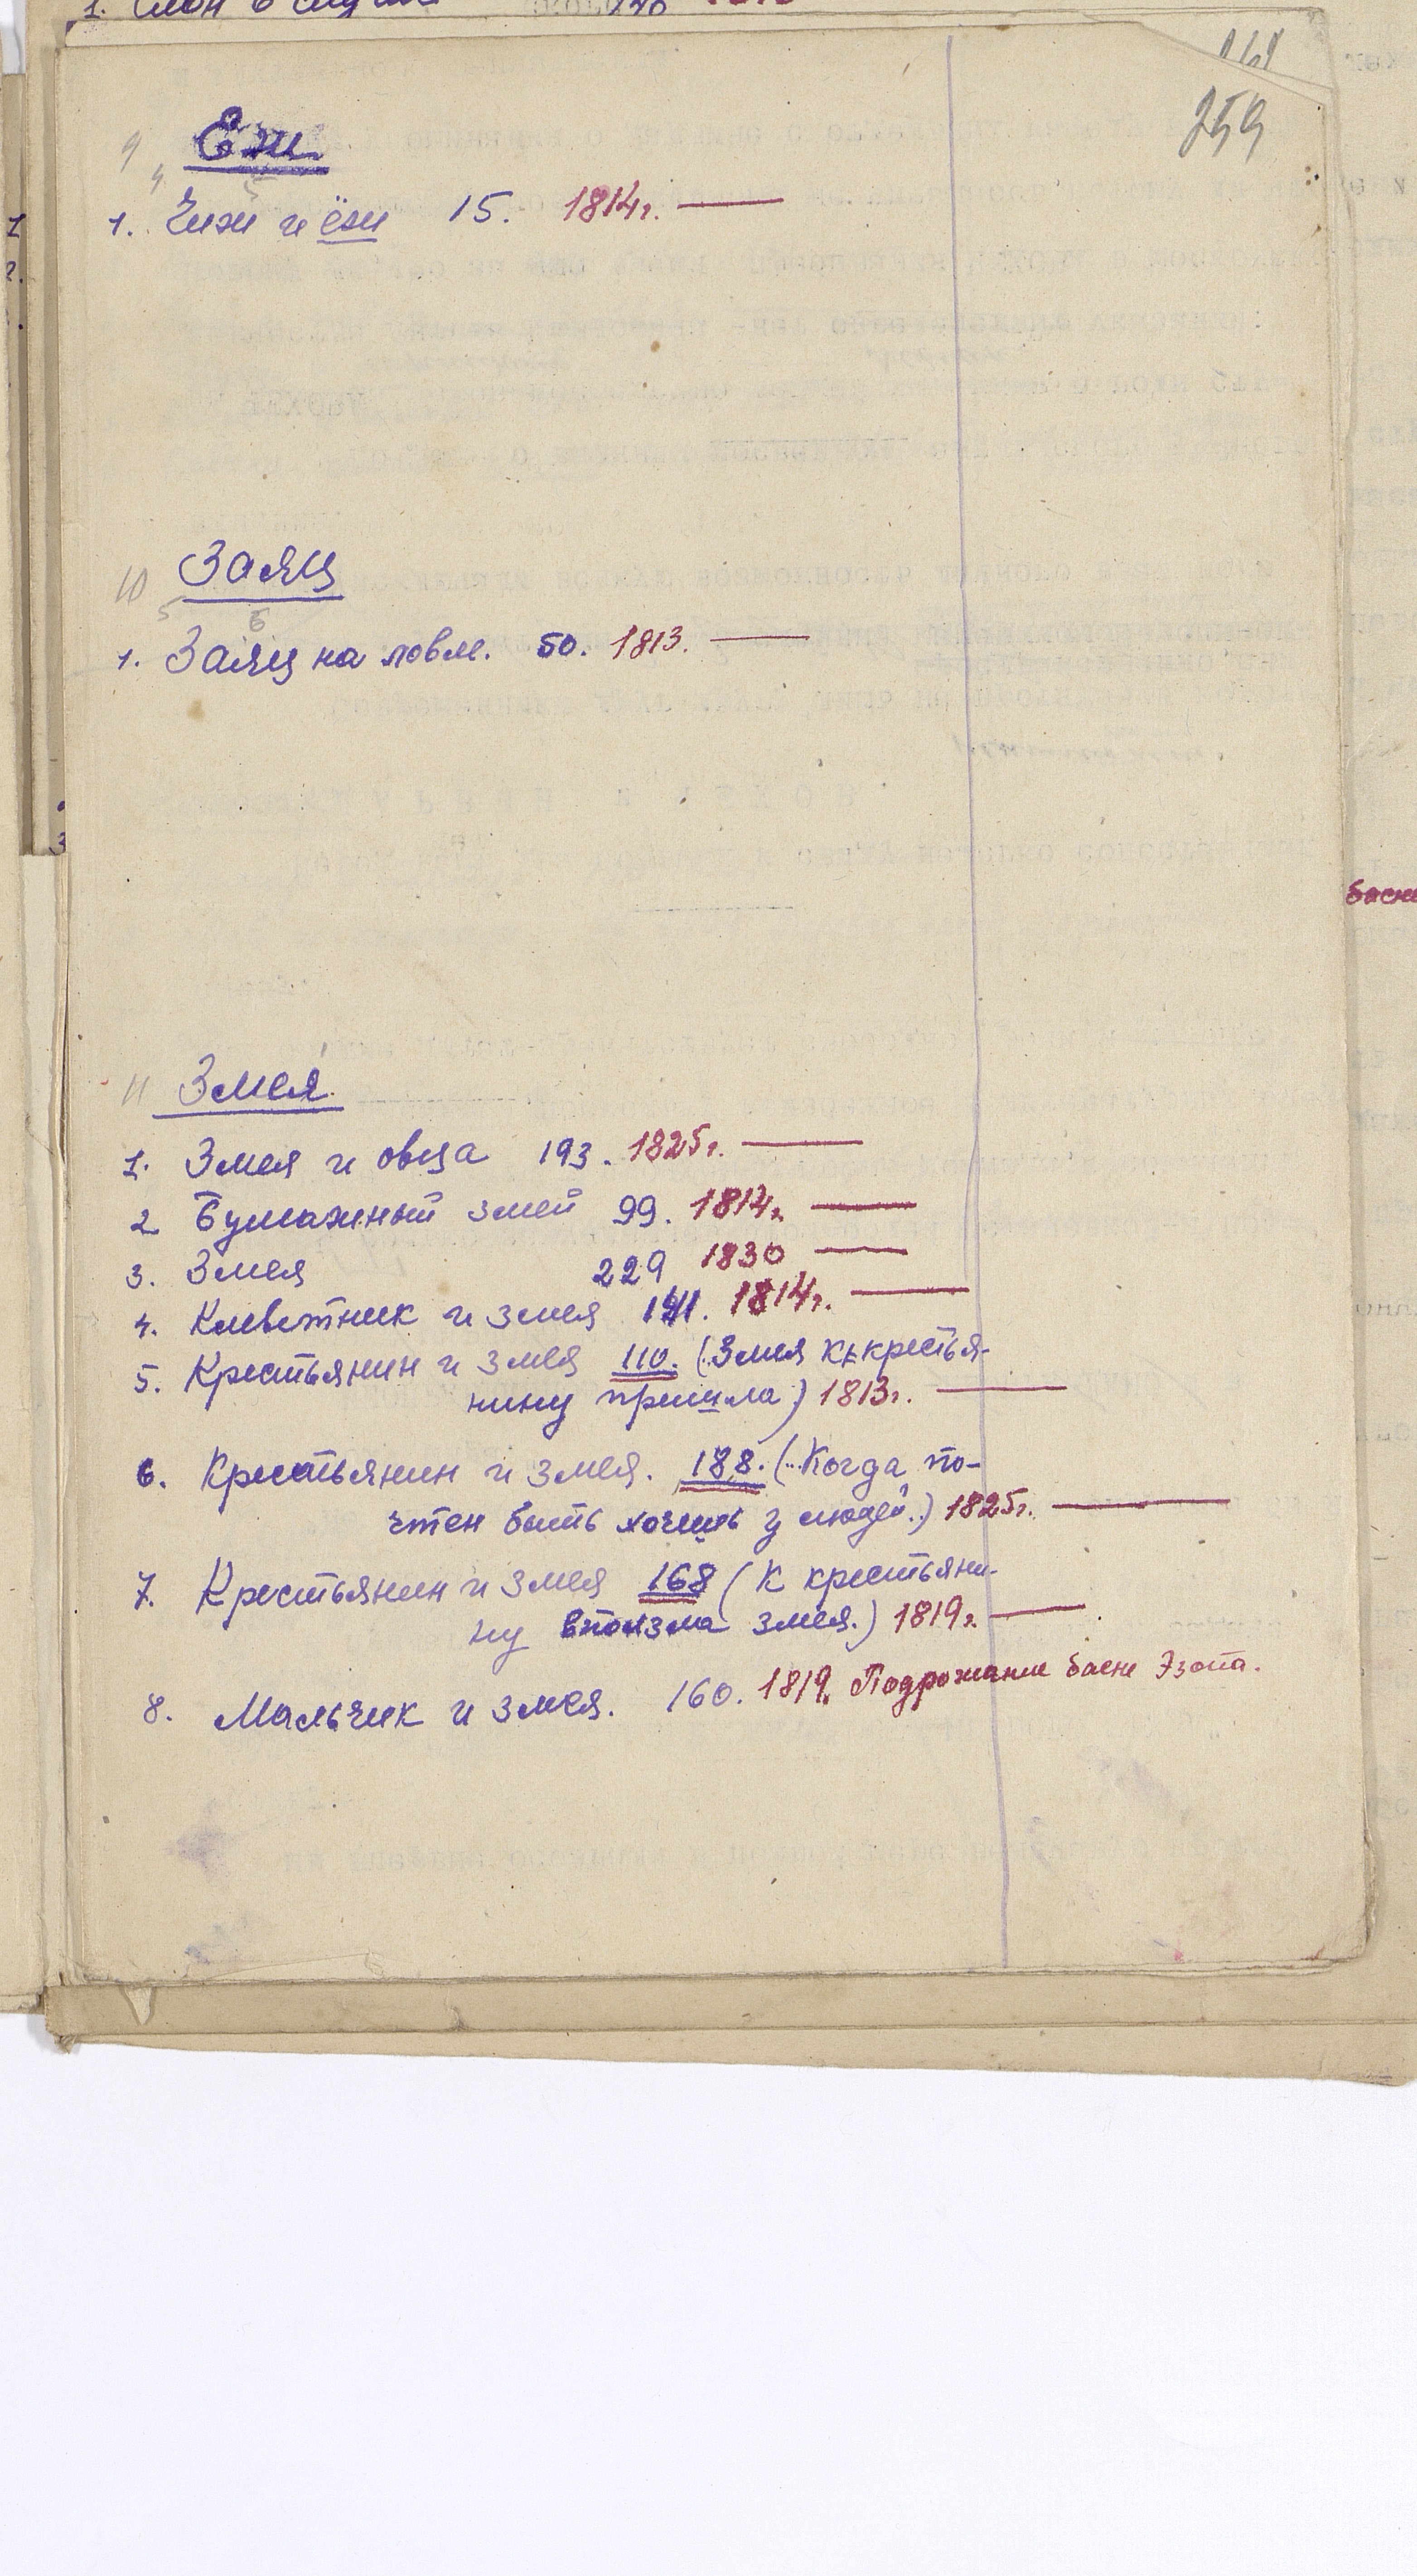 1. Слон в случае
259
9 Еж
1. Чиж и ёж 15. 1814г. —
10 Заяц
5 6
1. Заяц на ловле. 50. 1813. —
11 Змея.
1. Змея и овца 193. 1825г. —
2 Бумажный змей 99. 1814г. —
3. Змея 229 1830 —
4. Клеветник и змея 141. 1814г. —
5. Крестьянин и змея 110. (Змея к крестья-
нину пришла) 1813г. —
6. Крестьянин и змея. 188. (..Когда по-
чтен быть хочешь у людей..) 1825г. —
7. Крестьянин и змея 168 (К крестьяни-
ну вползла змея.) 1819г. —
8. Мальчик и змея. 160. 1819. Подрожание басне Эзопа.
басни